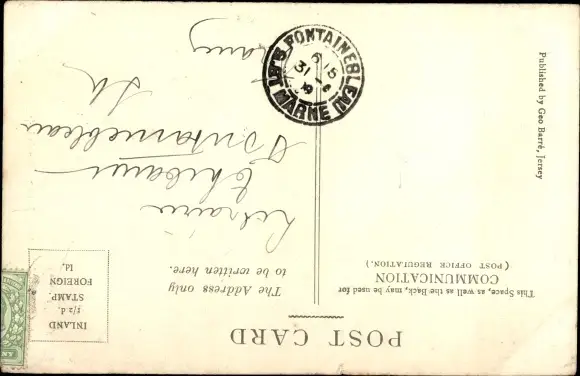 POST CARD
This Space, as well as the Back, may be used for
COMMUNICATION
(POST OFFICE REGULATION.)
The Address only
to be written here.
INLAND
1/2 d.
STAMP.
FOREIGN
1d.
Librairie
Thibaux
Fontainebleau
Published by Geo Barré, Jersey
FONTAINEBLEAU
6 15
31
MARNE